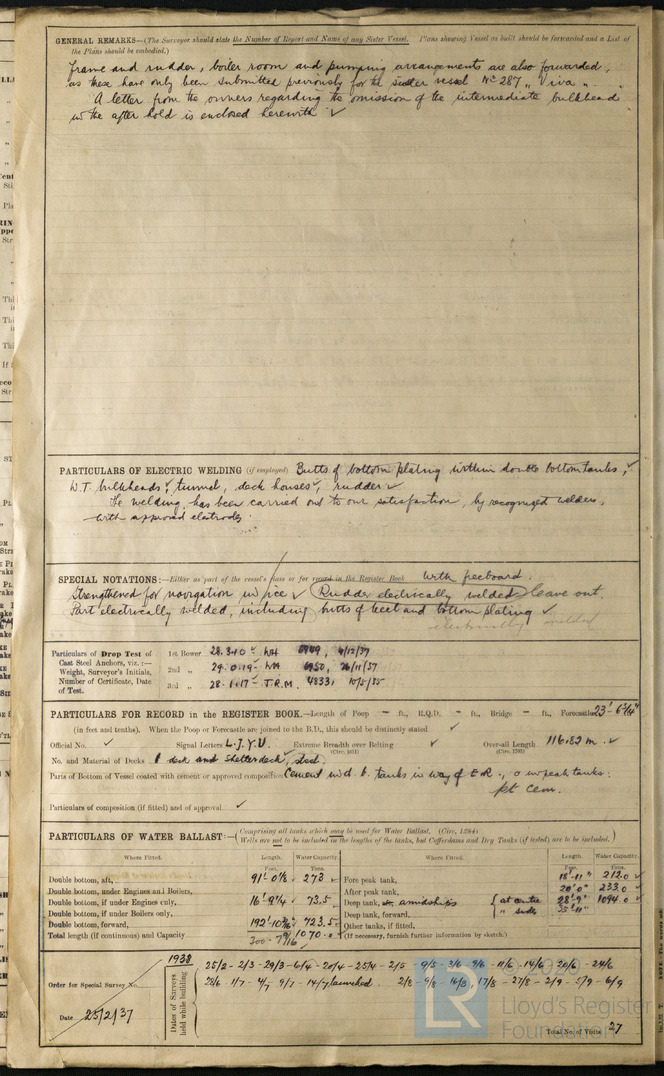 GENERAL REMARKS—(The Surveyor should state the Number of Report and Name of any Sister Vessel. Plans showing Vessel as built should be forwarded and a List of
the Plans should be embodied.)
frame and rudder, boiler room and pumping arrangements are also forwarded,
as these have only been submitted previously for the sister vessel No 287 "Viva".
A letter from the owners regarding the omission of the intermediate bulkhead
in the after hold is enclosed herewith ✓
PARTICULARS OF ELECTRIC WELDING (if employed) Butts of bottom plating within double bottom tanks, ✓
W.T. bulkheads ✓, tunnel, deck houses ✓, rudder ✓
The welding has been carried out to our satisfaction, by recognized welders,
with approved electrodes.
SPECIAL NOTATIONS:—Either as part of the vessel's class or for record in the Register Book with freeboard.
Strengthened for navigation in ice ✓ (Rudder electrically welded) leave out.
Part electrically welded, including butts of keel and bottom plating ✓
electrically welded
Particulars of Drop Test of 1st Bower 28.3.10 LH 6/12/37
Cast Steel Anchors, viz.:— 2nd „ 29.0.19 LH 6950, 26/11/37
Weight, Surveyor's Initials,
Number of Certificate, Date 3rd „ 28.1.17 J.R.M. 4833, 10/5/35
of Test.
PARTICULARS FOR RECORD in the REGISTER BOOK.—Length of Poop – ft., R.Q.D. – ft., Bridge – ft., Forecastle 23'-6 3/4"
(in feet and tenths). When the Poop or Forecastle are joined to the B.D., this should be distinctly stated ✓
Official No. ✓ Signal Letters L.J.Y.U. Extreme Breadth over Belting ✓ Over-all Length 116.82 m. ✓
(Circ. 1611) (Circ. 1703)
No. and Material of Decks 1 deck and Shelterdeck, steel
Parts of Bottom of Vessel coated with cement or approved composition Cement in d. b. tanks in way of E.R., & in peak tanks.
pt cem.
Particulars of composition (if fitted) and of approval ✓
PARTICULARS OF WATER BALLAST:—(Comprising all tanks which may be used for Water Ballast. (Circ. 1284)
Wells are not to be included in the lengths of the tanks, but Cofferdams and Dry Tanks (if tested) are to be included.)
Where Fitted. Length. Water Capacity. Where Fitted. Length. Water Capacity.
Feet. Tons. Feet. Tons.
Double bottom, aft, 91'-0 1/8 273 Fore peak tank, 18'-11" 212.0 ✓
Double bottom, under Engines and Boilers, After peak tank, 20'-0" 233.0 ✓
Double bottom, if under Engines only, 16'-9 1/4 ✓ 73.5 Deep tank, amidships { at centre 28'-9" 1094.0 ✓
Double bottom, if under Boilers only, Deep tank, forward, „ sides 35'-11"
Double bottom, forward, 192'-10 723.5 Other tanks, if fitted,
Total length (if continuous) and Capacity 300-7 9/16 1070 (If necessary, furnish further information by sketch.)
1938
Order for Special Survey No.
Date 25/2/37
Dates of Surveys held while building
25/2 - 2/3 - 29/3 - 6/4 - 20/4 - 25/4 - 2/5 9/5 3/6 9/6 - 11/6 - 14/6 20/6 - 24/6
28/6 - 1/7 - 4/7 9/7 - 14/7 launched. 2/8 - 9/8 - 16/8, 17/8 - 27/8 - 2/9 - 5/9 - 6/9
Total No. of Visits 27
LR
© 2020
Lloyd's Register
Foundation